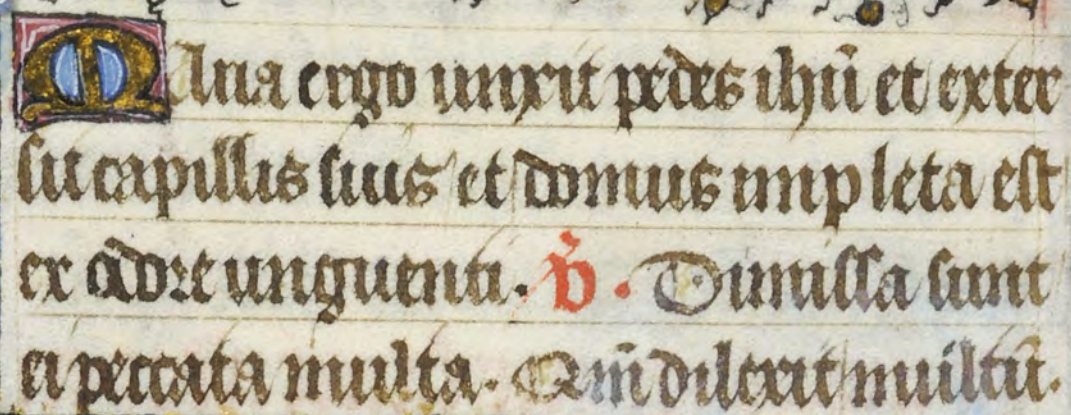 Maria ergo unxit pedes ihū et exter
sit capillis suis et domus impleta est
ex odore unguenti. v̄. Dimissa sunt
ei peccata multa. Qm̄ dilexit multū.